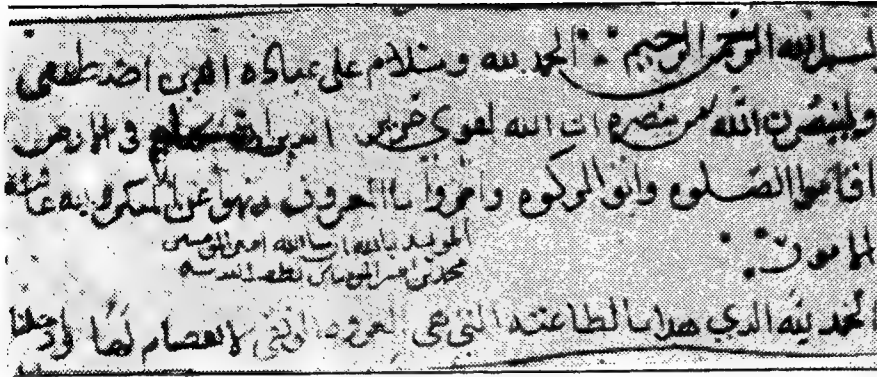 بسم الله الرحمن الرحيم الحمد لله وسلام على عباده الذين اصطفى
ولينصرن الله من ينصره ان الله لقوي عزيز الذين ان في الارض
اقاموا الصلوه واتوا الزكوه وامروا بالمعروف ونهوا عن المنكر ولله عاقبة
الامور
المويد بالله امير المومنين
محمد بن امير المومنين
الحمد لله الذي هدانا لطاعته التي هي العروه الوثقى لا انفصام لها